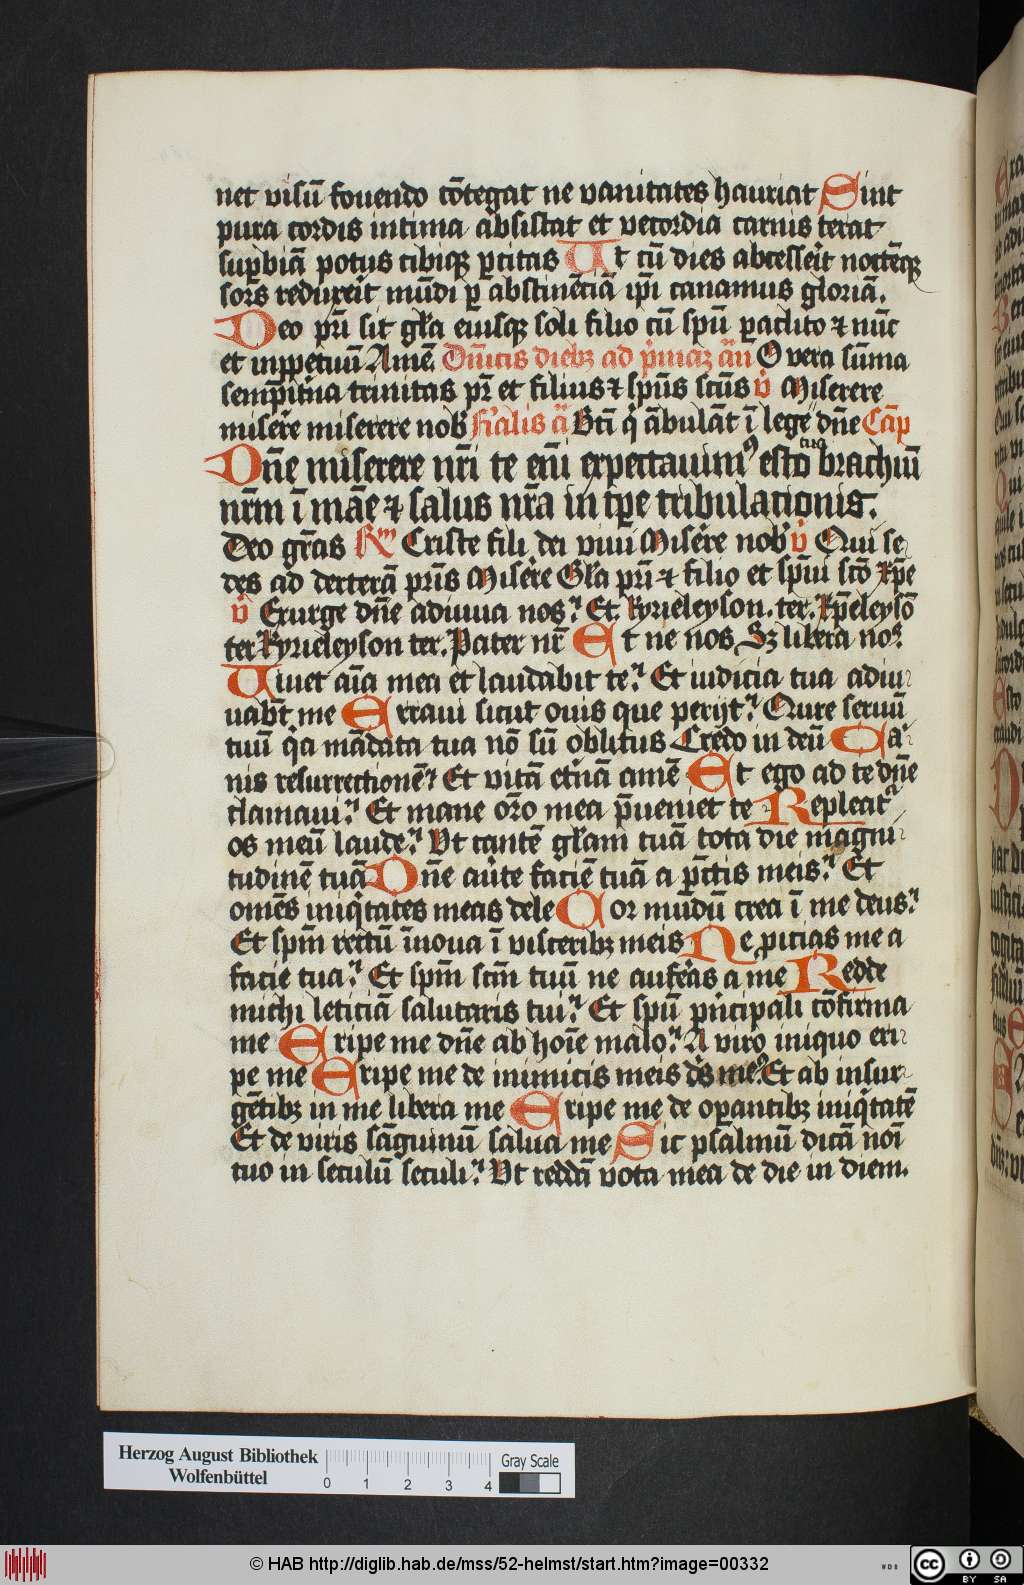 net visū fovendo cōtegat ne vanitates hauriat Sint
pura cordis intima absistat et vecordia carnis terat
sup̄biā potus cibiqꝫ p̄citas Ut cū dies abcesserit noctēqꝫ
sors reduxerit mūdi p̱ abstinēciā ip̄i canamus gloriā.
Deo pr̄i sit gl̄a eiusqꝫ soli filio cū spū paclito ⁊ nūc
et inꝑpetuū Amē. Dn̄icis diebꝫ ad p̄mā an̄ O vera sūma
semp̄it̄na trinitas pr̄ et filius ⁊ spūs scūs v̄ Miserere
miser̄e miserere nob̄ Fīalis ā Bt̄i q̄ ābulāt ī lege dn̄e Cāp
Dn̄e miserere nr̄i te eni expectauimꝰ esto brachiū
tuꝰ
nr̄m ī māe ⁊ salus nr̄a in tp̄e tribulationis.
Deo gr̄as Rm Criste fili dei viui Miser̄e nob̄ v̄ Qui se
des ad dexterā pr̄is Miser̄e Gl̄a pr̄i ⁊ filio et sp̄ui sc̄o Xp̄e
v̄ Exurge dn̄e adiuua nos. Et kyrieleyson. ter. Xp̄eleysō
ter kyrieleyson ter. Pater nr̄ Et ne nos Sꝫ libera nos
Uiuet aīa mea et laudabit te. Et iudicia tua adiu
uabt̄ me Erraui sicut ouis que perijt. Qure seruū
tuū q̄a mādata tua nō sū oblitus Credo in deū Ca
nis resurrectionē Et vitā et̄nā amē Et ego ad te dn̄e
clamaui. Et mane or̄o mea p̄ueniet te Repleatᵘ
os meū laude. Ut cantē gl̄am tuā tota die magni
tudinē tuā Dn̄e au̇te faciē tuā a p̄cc̄tis meis. Et
omēs iniq̄tates meas dele Cor mūdū crea ī me deus.
Et spm̄ rectū īnoua ī visceribꝫ meis Ne ꝓicias me a
facie tua. Et spm̄ scm̄ tuū ne auferas a me Redde
michi leticiā salutaris tui. Et spū pn̄cipali cōfirma
me Eripe me dn̄e ab hoīe malo. A viro iniquo eri
pe me Eripe me de inimicis meis ds̄ meꝰ. Et ab insur
gētibꝫ in me libera me Eripe me de oꝑantibꝫ iniq̄tatē
Et de viris sāguinū salua me Sic psalmū dicā noī
tuo in seculū seculi. Ut reddā vota mea de die in diem.
Herzog August Bibliothek
Wolfenbüttel
0 1 2 3 4
Gray Scale
© HAB http://diglib.hab.de/mss/52-helmst/start.htm?image=00332
WDB
CC BY SA